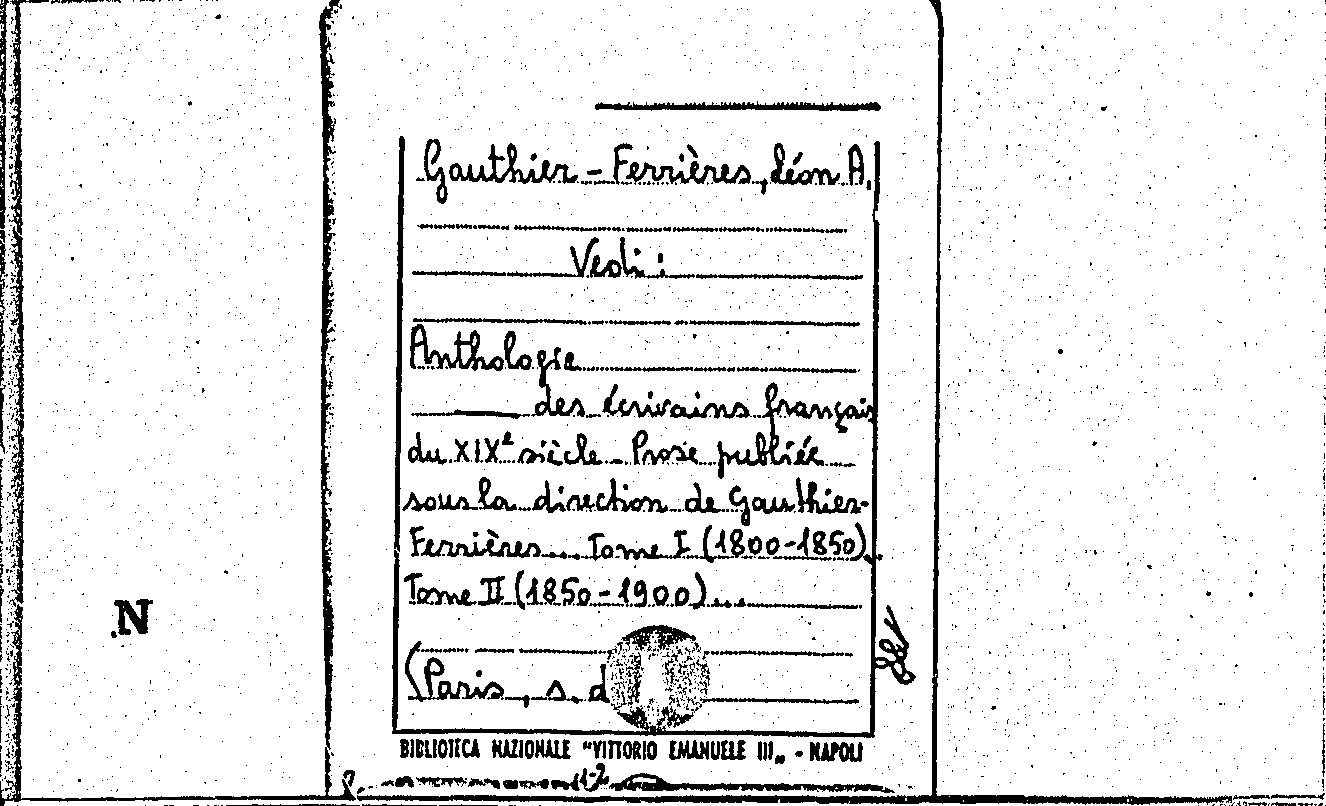 Gauthier-Ferrières, Léon A.
Vedi:
Anthologie
——— des écrivains français
du XIXe siècle. Prose publiée
sous la direction de Gauthier-
Ferrières... Tome I (1800-1850).
Tome II (1850-1900)...
N
(Paris, s. d
BIBLIOTECA NAZIONALE "VITTORIO EMANUELE III„ - NAPOLI